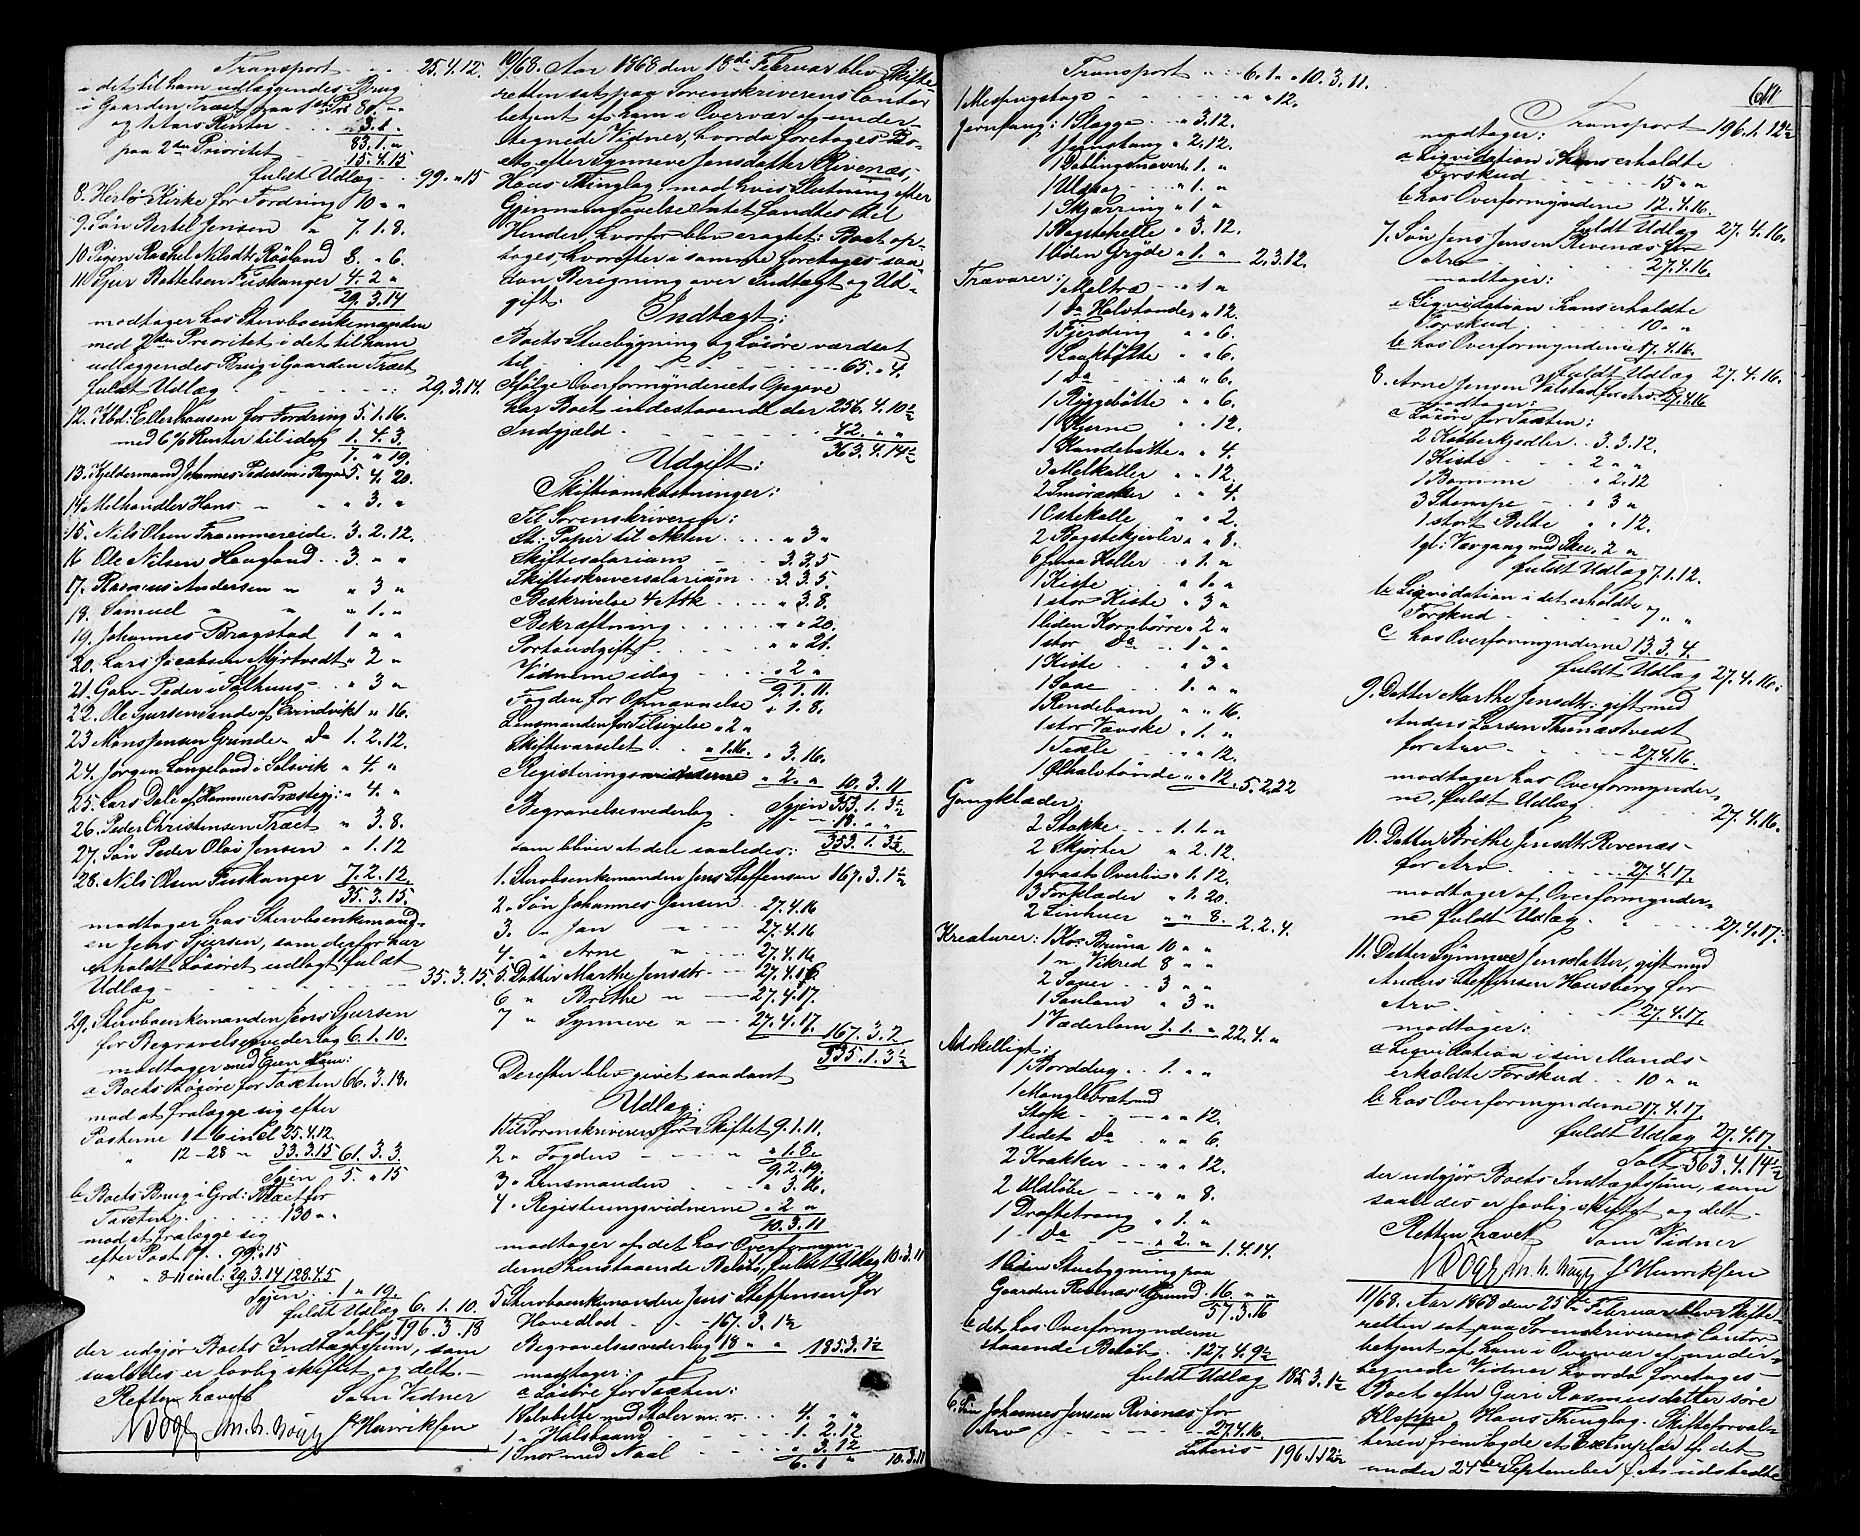 Transport . . . 25.4.12.
a det til ham udlæggendes Brug
i Gaarden Træet paa 1ste Pr. 80 " "
og 1 Aars Renter . . . " 3.1. "
83.1. "
paa 2den Prioritet . . . 15.4.15
fuldt Udlæg . . 99. " 15
8. Herlø Kirke for Fordring 10 " "
9. Søn Bertel Jensen " 7.1.8.
10. Pigen Rachel Nilsdtr Røsland 8. " 6.
11. Sjur Battelsen Fuskanger 4.2 "
29.3.14
modtager hos Stervboenkemanden
med 2den Prioritet i det til ham
udlæggendes Brug i Gaarden Træet
fuldt Udlæg . . . 29.3.14.
12. Ellerhausen for Fordring 5.1.16.
med 6% Renter til idag 1.4.3.
7. " 19.
13. Kjeldermand Johannes Pedersen i Bergen 5.4.20.
14. Melhandler Hans " " " 3. "
15. Nils Olsen Frammereide. 3.2.12.
16 Ole Nilsen Haugland . . 3. " "
17. Rasmus Andersen " " 3 "
18. Samuel " " " 1. "
19. Johannes Bragstad 1 " "
20. Lars Jacobsen Myrtvedt " 2 "
21. Garv. Peder i Solhuus . . " 3 "
22. Ole Sjursen Sande af Evindvik 1 " 16.
23 Mons Jensen Grinde . Do 1.2.12.
24. Jørgen Langeland i Solsvik " 4. "
25. Lars Dale af Hammers Præstegj: " 4. "
26. Peder Christensen Træet " 3.8.
27. Søn Peder Olai Jensen " 1.12
28. Nils Olsen Fuskanger 7.2.12
35.3.15.
modtager hos Stervboenkemand-
en Jens Sjursen, som derfor har
erholdt Løsøret udlagt fuldt
Udlæg . . . 35.3.15.
29. Stervboenkemanden Jens Sjursen
for Begravelsesvederlag 6.1.10.
modtager med Eiendom:
a Boets Løsøre for Taxten 66.3.18.
mod at fralægge sig efter
Posterne 1-6 incl 25.4.12.
" 12-28 " 33.3.15 61.3.3
Igjen 5. " 15
b Boets Brug i Grd: Træet for
Taxten . . . 130 " "
mod at fralægge sig
efter Post 7. 99 " 15
" " 8-11 incl: 29.3.14 128.4.5
Igjen . . 1 " 19.
fuldt Udlæg 6.1.10.
Salt 196.3.18
der udgjør Boets Indtægtssum, som
saaledes er lovlig skiftet og delt.
Retten hævet Som Vidner
Henriksen
10/68. Aar 1868 den 18de Februar blev Skifte-
retten sat paa Sorenskriverens Contor
betjent af ham i Overvær af under-
tegnede Vidner, hvorda foretoges Bo-
et efter Synneve Jensdatter Rivenæs,
Hans Thinglag, mod hvis Slutning efter
Gjennemgaaelse Intet fandtes til
Hinder, hvorfor blev eragtet: Boet op-
tages, hvorefter i samme foretages saa-
dan Beregning over Indtægt og Ud-
gift:
Indtægt:
Boets Stuebygning og Løsøre værdsat
til . . . 65. " 4.
Ifølge Overformynderiets Opgave
har Boet indestaaende der 256.4.10½
Indgjæld . . . 42. " "
363.4.14½
Udgift:
Skifteomkostninger:
Til Sorenskriveren:
St: Papir til Akten . . . " 3 "
Skiftesalarium . . 3.3.5
Skifteskriversalarium . . 3.3.5.
Beskrivelse 4 Ark . . . " 3.8.
Bekræftning . . . " " 20.
Portoudgift . . . " " 21.
Vidnerne idag . . . " 2 "
9.1.11.
Fogden for Opnævnelse " 1.8.
Lensmanden for Tilsigelse " 2 "
Skiftevarselet . . " 1.16. " 3.16.
Registeringsvidnerne " 2. " 10.3.11
Igjen 353.1.3½
Begravelsesvederlag . . 18. " "
som bliver at dele saaledes: 335.1.3½.
1. Stervboenkemanden Jens Steffensen 167.3.1½
2. Søn Johannes Jensen . . 27.4.16
3. " Jan " . . 27.4.16
4. " Arne " . . 27.4.16
5 Datter Marthe Jensdtr . . 27.4.16.
6 " Brithe " . . 27.4.17.
7 " Synneve " . . 27.4.17. 167.3.2
335.1.3½
Derefter blev givet saadant
Udlæg:
1 Til Sorenskriveren for Skiftet 9.1.11.
2 " Fogden . . . " 1.8.
9.2.19.
3 " Lensmanden . . . " 3.16.
4. " Registeringsvidnerne " 2 "
10.3.11
modtager af det hos Overformyn-
derne henstaaende Beløb, fuldt Udlæg 10.3.11
5 Stervboenkemanden Jens Steffensen for
Hovedlod . . . 167.3.1½
Begravelsesvederlag 18 " " 185.3.1½
modtager:
a Løsøre for Taxten:
1 Sølvbelte med Støler m. v. . . 4. " "
1 " Halsbaand . . . 1.2.12.
1 Snor med Naal . . . " 3.12
6.1 " 10.3.11
Transport . . . 6.1 " 10.3.11.
1 Mesfingstage . . . " " 12.
Jernfang: 1 Slægge . . " 3.12.
1 Jernstang " 2.12.
1 Dablingsnaver " 1. "
1 Uldkar . . " 1. "
1 Skjærring " 1 "
1 Bagstehelle " 3.12.
1 liden Gryde " 1. " 2.3.12.
Trævarer: 1 Meltrø . . " 1 "
1 Do Halvtønde " " 12.
1 Fjerding " " 6.
1 Saaldbøtte " " 6.
1 Do . . " " 6.
1 Ryggebøtte " " 6.
1 Kjerne " " 12.
1 Handebøtte " " 4.
3 Melkeller " " 12.
2 Smørasker " " 4.
1 Ostekolle " " 2.
2 Bagstekjevler " " 8.
6 smaa Koller " 1. "
1 Kiste . . " 1. "
1 stor Kiste " 3 "
1 liden Kornbørre " 2 "
1 stor Do . " 1. "
1 Kiste . . " 3 "
1 Saae . . 1. " "
1 Rendebom " " 16.
1 stor Vævske " 1. "
1 Texle " " 12.
1 Øl halvtønde " " 12. 5.2.22
Gangklæder:
2 Stakke . . 1.1. "
2 Skjorter " 2.12.
1 graat Overliv " 1.12.
3 Forklæder " 1.20.
2 Linhuer " " 8. 2.2.4.
Kreaturer: 1 Ko Bruna 10 " "
1 " Vikred 8 " "
2 Sauer . . 3 " "
1 Sauland " 3 "
1 Væderlam 1.1. " 22.4. "
Adskilligt:
1 Borddug . . 1. " "
1 Manglebræt med
Stok . . . " " 12.
1 ledet Do " " 6.
2 Krakker . . " " 12.
2 Uldløbe . . " " 8.
1 Draftetroug " 1. "
1 Do . . " 2. " 1.4.14.
1 liden Stuebygning paa
Gaarden Revenæs Grund 16. " "
57.3.16
b det hos Overformynderne
staaende Beløb . . 127.4.9½
fuldt Udlæg 185.3.1½
6. Søn Johannes Jensen Rivenæs for
Arv . . . 27.4.16.
Lateris 196.1.12½
611
Transport 196.1.12½
modtager:
a Liqvidation i hans erholdte
Forskud . . . 15 " "
b hos Overformynderne 12.4.16.
fuldt Udlæg 27.4.16.
7. Søn Jens Jensen Revenæs for
Arv . . . 27.4.16.
modtager:
a Liqvidation i hans erholdte
Forskud . . . 10 " "
b hos Overformynderne 17.4.16.
fuldt Udlæg 27.4.16.
8. Arne Jensen Valstad for Arv. 27.4.16
modtager:
a Løsøre for Taxten:
2 Kobberkjedler . . 3.3.12.
1 Kiste . . 2 " "
1 Bomme . . " 2.12
3 Stempe . . " 3 "
1 stort Belte " " 12.
1 gl: Vævgang med Skee. 2 "
fuldt Udlæg 7.1.12.
b Liqvidation i det erholdte
Forskud . . 7 " "
c hos Overformynderne 13.3.4.
fuldt Udlæg 27.4.16.
9. Datter Marthe Jensdtr: gift med
Anders Larsen Thunæstvedt
for Arv . . . 27.4.16.
modtager hos Overformynder-
ne, fuldt Udlæg . . . 27.4.16.
10. Datter Brithe Jensdtr Revenæs
for Arv . . . 27.4.17.
modtager af Overformynder-
ne fuldt Udlæg . . . 27.4.17.
11. Datter Synneve Jensdatter, gift med
Anders Steffensen Hausberg for
Arv . . . 27.4.17.
modtager:
a Liqvidation i sin Mands
erholdte Forskud . . 10 " "
b hos Overformynderne 17.4.17.
fuldt Udlæg 27.4.17.
Salt 363.4.14½
der udgjør Boets Indtægtssum, som
saaledes er lovlig skiftet og delt.
Retten hævet Som Vidner
Henriksen
11/68. Aar 1868 den 25de Februar blev Skifte-
retten sat paa Sorenskriverens Contor
betjent af ham i Overvær af under-
tegnede Vidner hvorda foretoges
Boet efter Guri Rasmusdatter søre
Kleppe, Hans Thinglag. Skifteforval-
teren fremlagde et Exemplar af det
under 24de September f. A. udstedte